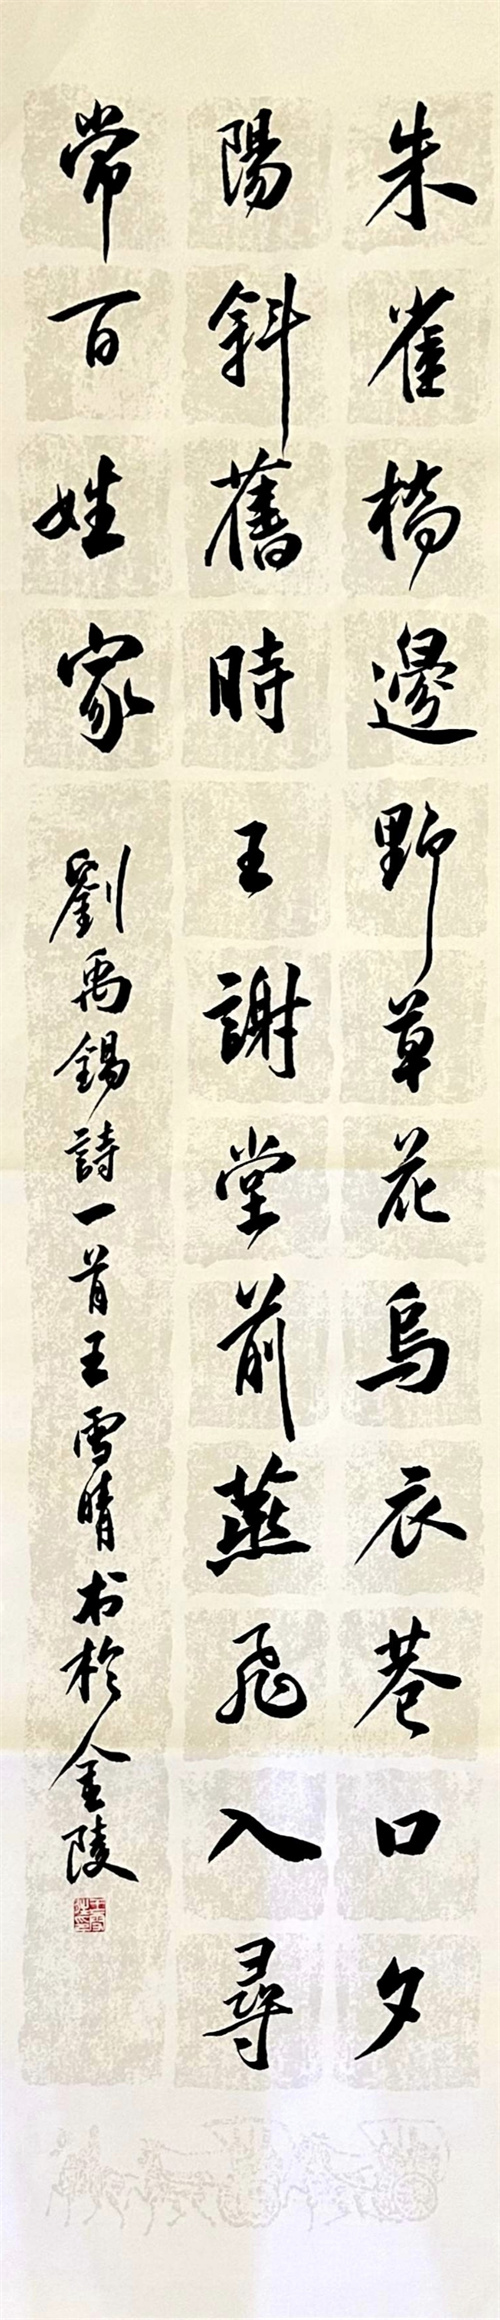 朱雀橋邊野草花烏衣巷口夕
陽斜舊時王謝堂前燕飛入尋
常百姓家
劉禹錫詩一首王雪晴书於金陵